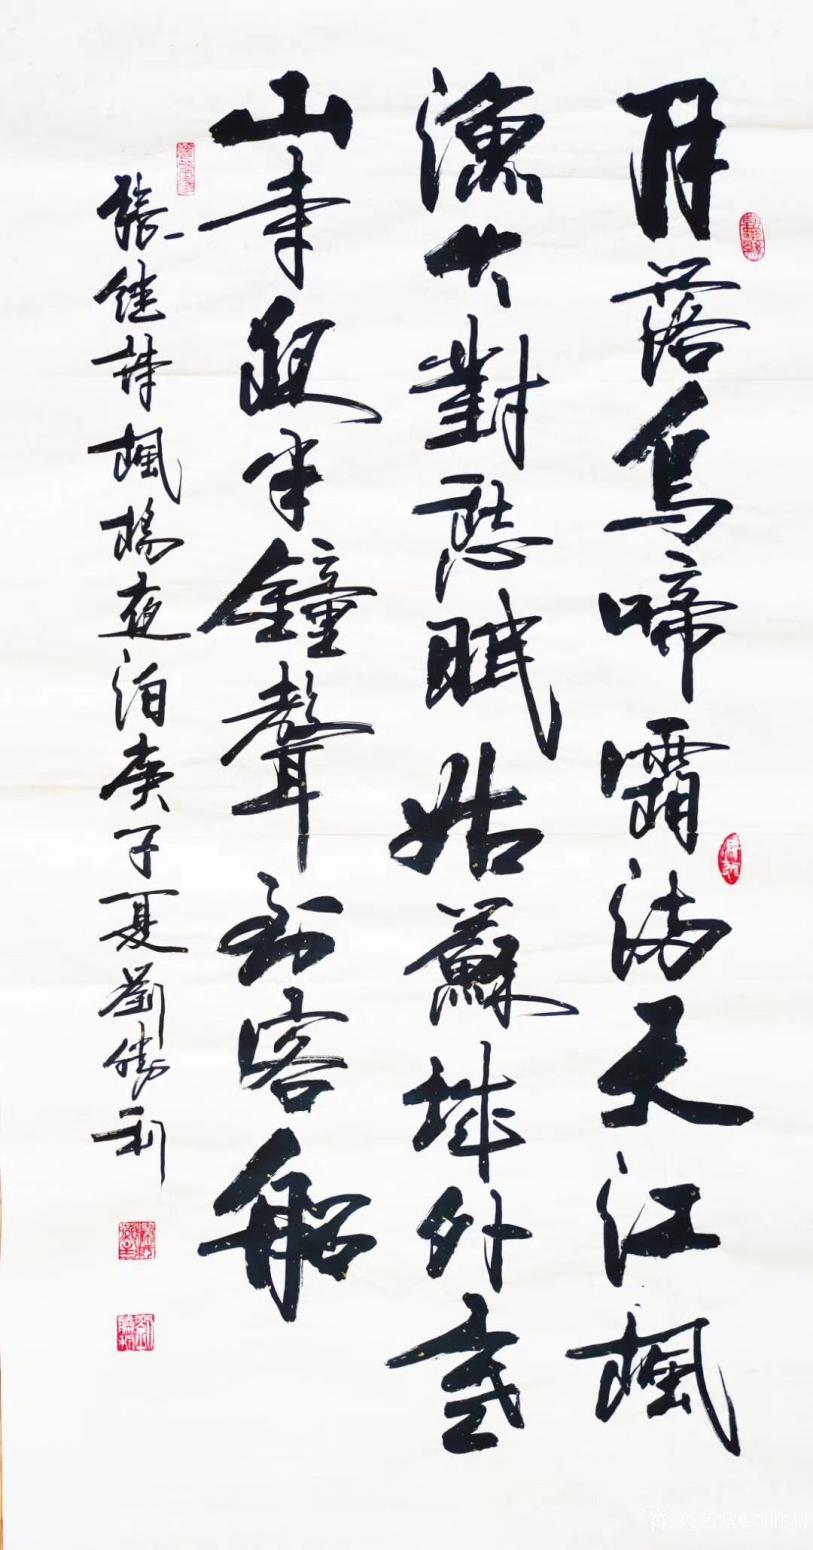 月落烏啼霜滿天江楓
漁火對愁眠姑蘇城外寒
山寺夜半鐘聲到客船
張继詩楓橋夜泊庚子夏劉勝利